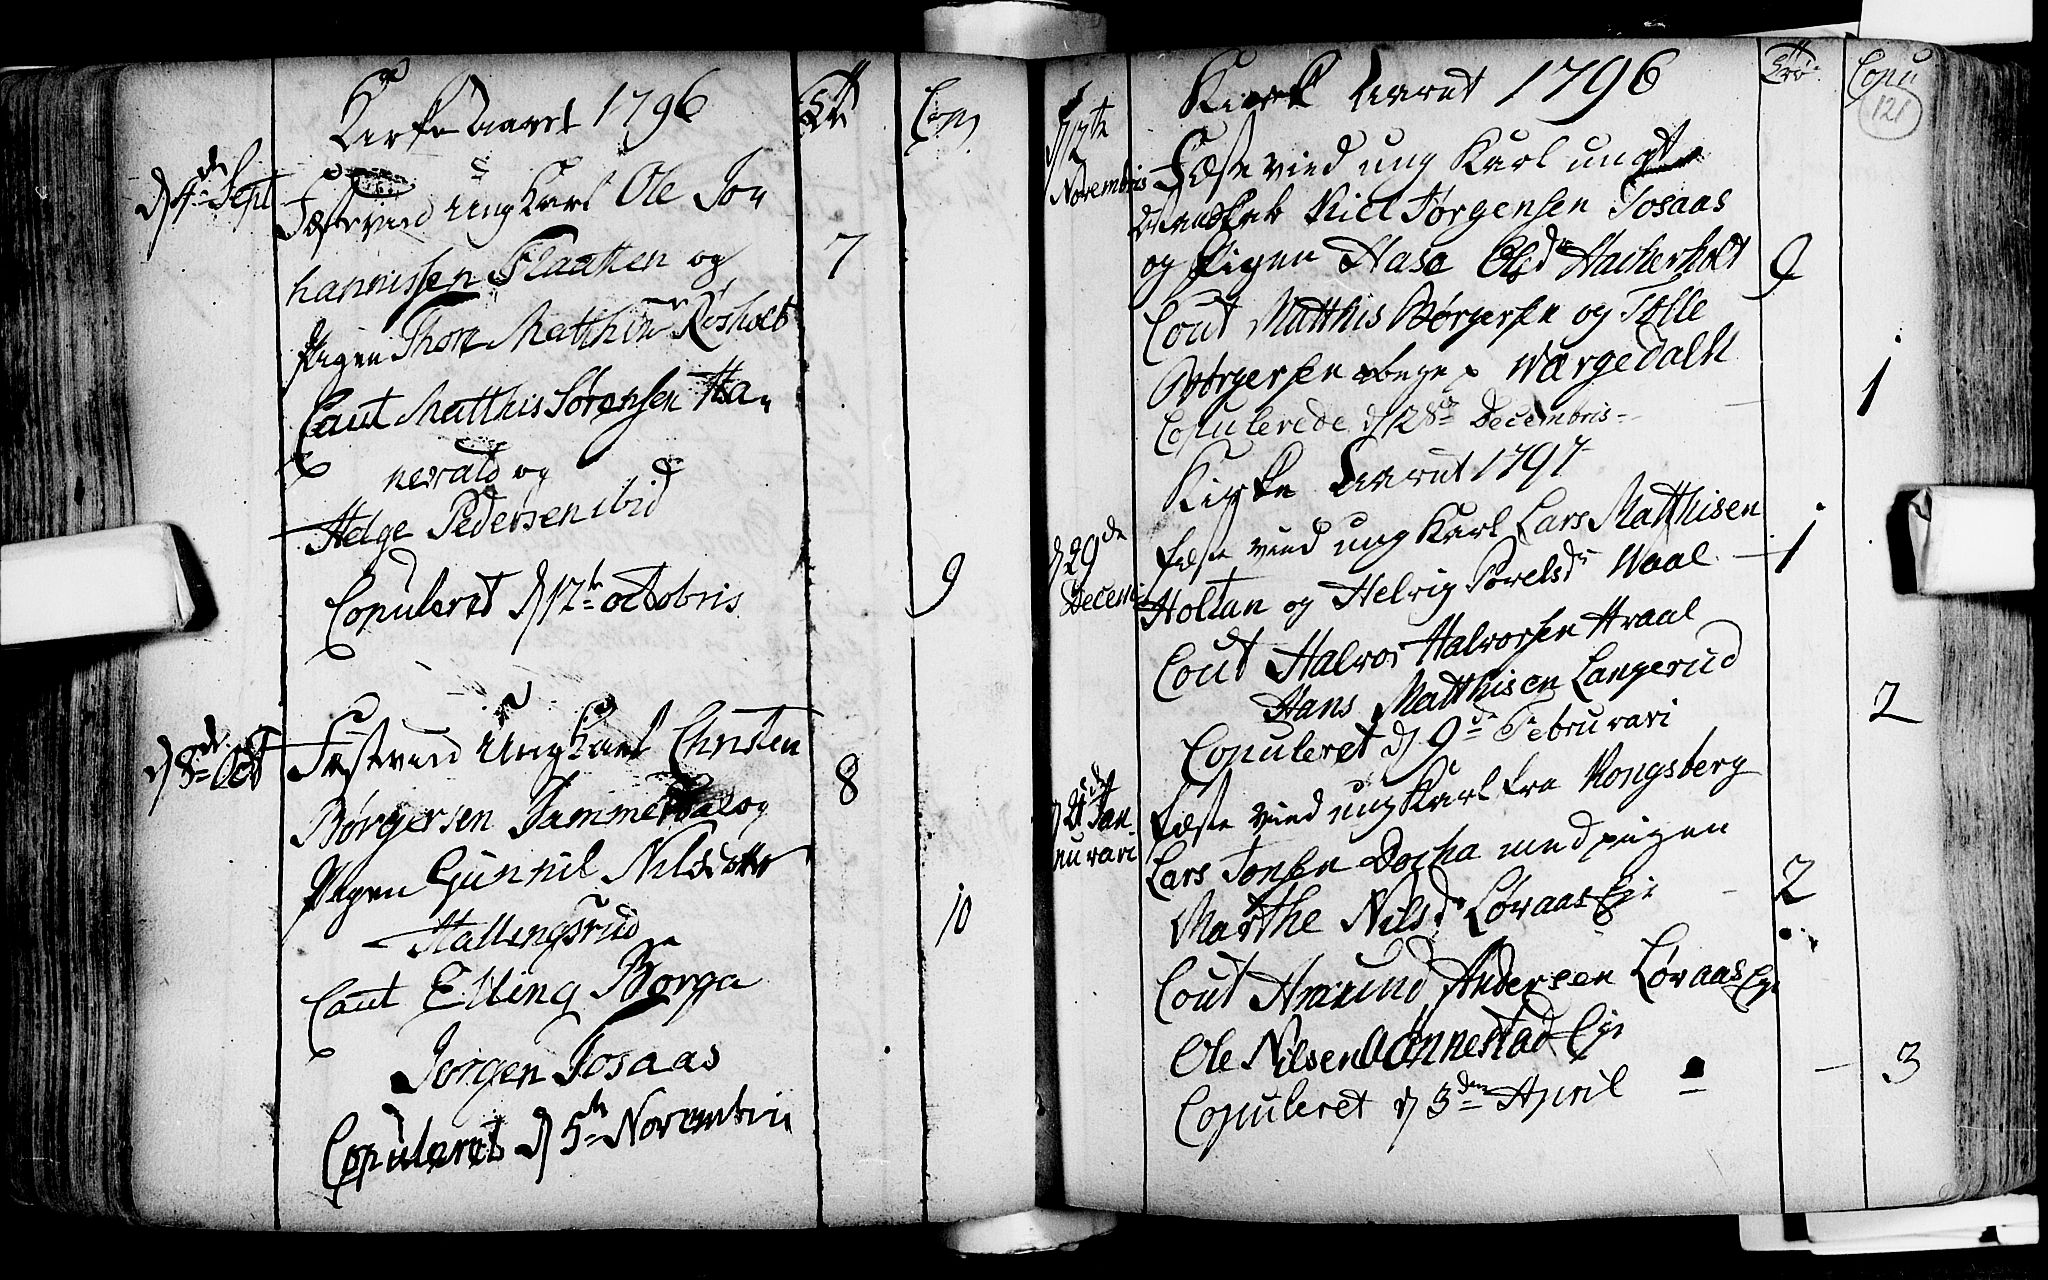 Kirke Aaret 1796
Cop
d 4de Sept
Fæstevied Ung Karl Ole Jo-
hannissen Flaatten og
7
Pigen Thore Matthiær Røsholt
Caut Matthis Sørensen Ha-
nevald og
Helge Pedersen ibid
Copuleret d 12te octobris
9
d 8de Oct
Fæstevied Ung Karl Christen
Børgersen Jammerdal og
8
Pigen Gunnil Nilsdatter
Hallingsrud
10
Caut Elling Borga
Jørgen Tosaas
Copuleret d 5te Novembris
Kirke Aaret 1796
Copu
121
d 12te Novembris
Fæste vied ung Karl
Niel Jørgensen Tosaas
og Pigen Aase Olsdr Hakerholt
9
Cout Matthis Børgersen og Tolle
Børgersen begge Wærgedalk
1
Copulerede d 28de Decembris
Kirke Aaret 1797
d 29de Decem
fæste vied ung Karl Lars Matthisen
Holtan og Helvig Povelsdr Waal
1
Cout Halvor Halvorsen Hraal
Hans Matthisen Langerud
2
Copuleret d 9de Februrari
d 21de Januvari
fæste vied ung Karl fra Kongsberg
Lars Tonsen Docka med pigen
Marthe Nilsdr Løvaas Eje
2
Cout Amund Andersen Løvaas Eje
Ole Nilsen Wønnestad Eje
3
Copuleret d 3den April